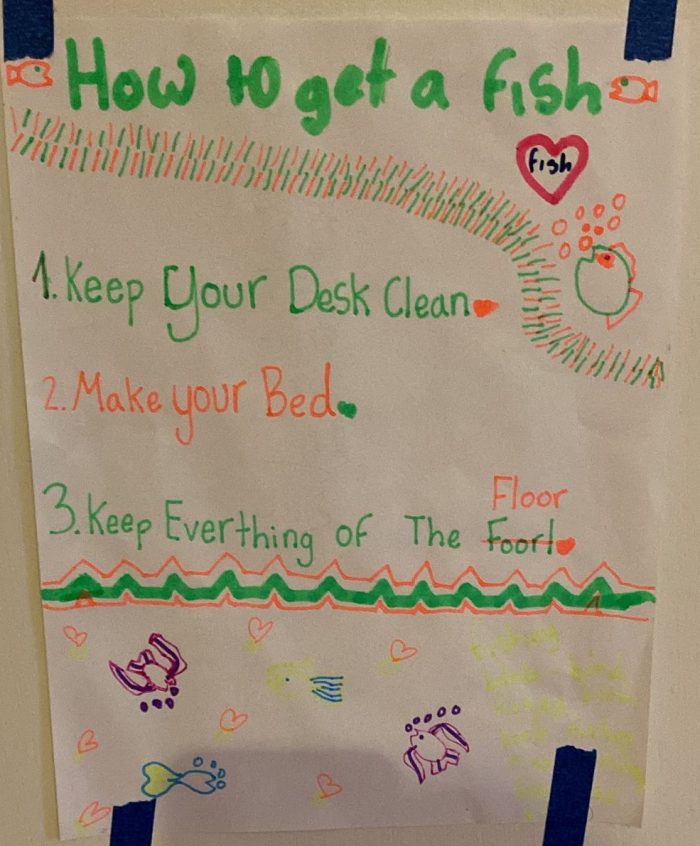 How to get a fish
fish
1. Keep Your Desk Clean.
2. Make your Bed.
Floor
3. Keep Everthing of The Foorl.